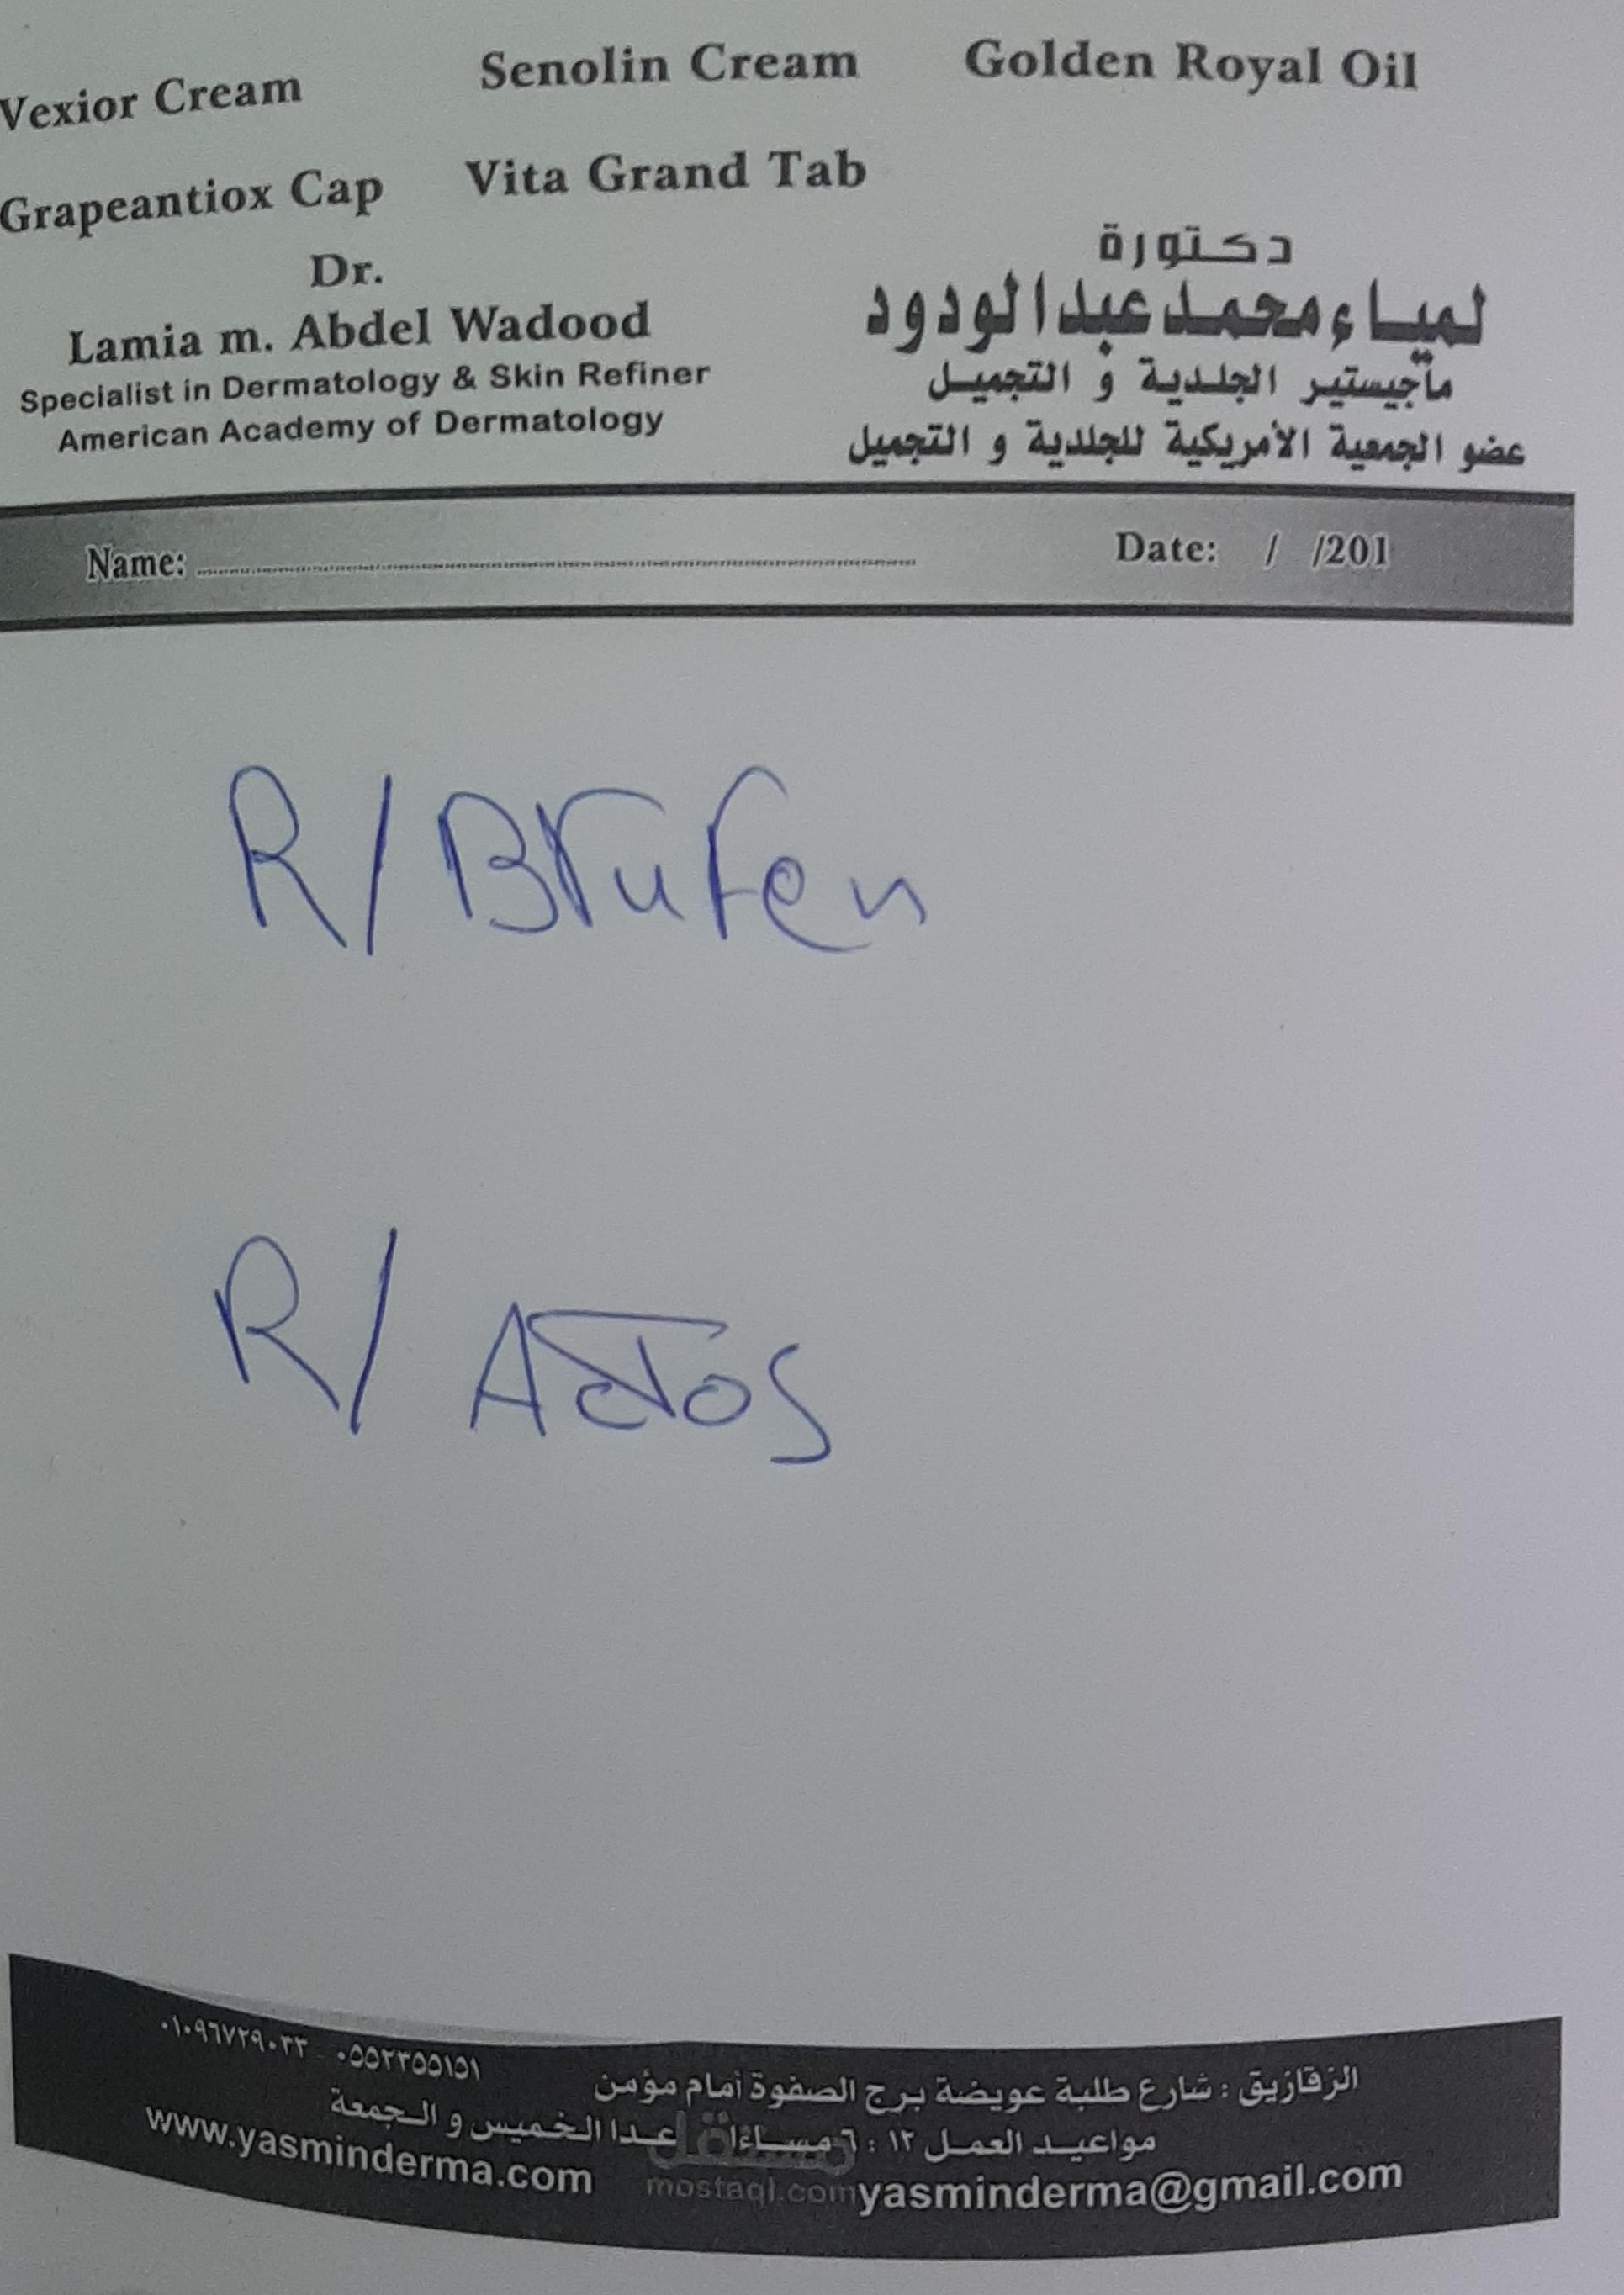 Vexior Cream Senolin Cream Golden Royal Oil
Grapeantiox Cap Vita Grand Tab
Dr.
Lamia m. Abdel Wadood
Specialist in Dermatology & Skin Refiner
American Academy of Dermatology
دكتورة
لمياء محمد عبدالودود
ماجيستير الجلدية و التجميل
عضو الجمعية الأمريكية للجلدية و التجميل
Name: Date: / /201
R/ Brufen
R/ Actos
٠١٠٩٦٧٢٩٠٣٣ - ٠٥٥٢٣٥٥١٥١
الزقازيق : شارع طلبة عويضة برج الصفوة أمام مؤمن
مواعيد العمل ١٢ : ٦ مساءً عدا الخميس و الجمعة
www.yasminderma.com yasminderma@gmail.com
مستقل
mostaql.com